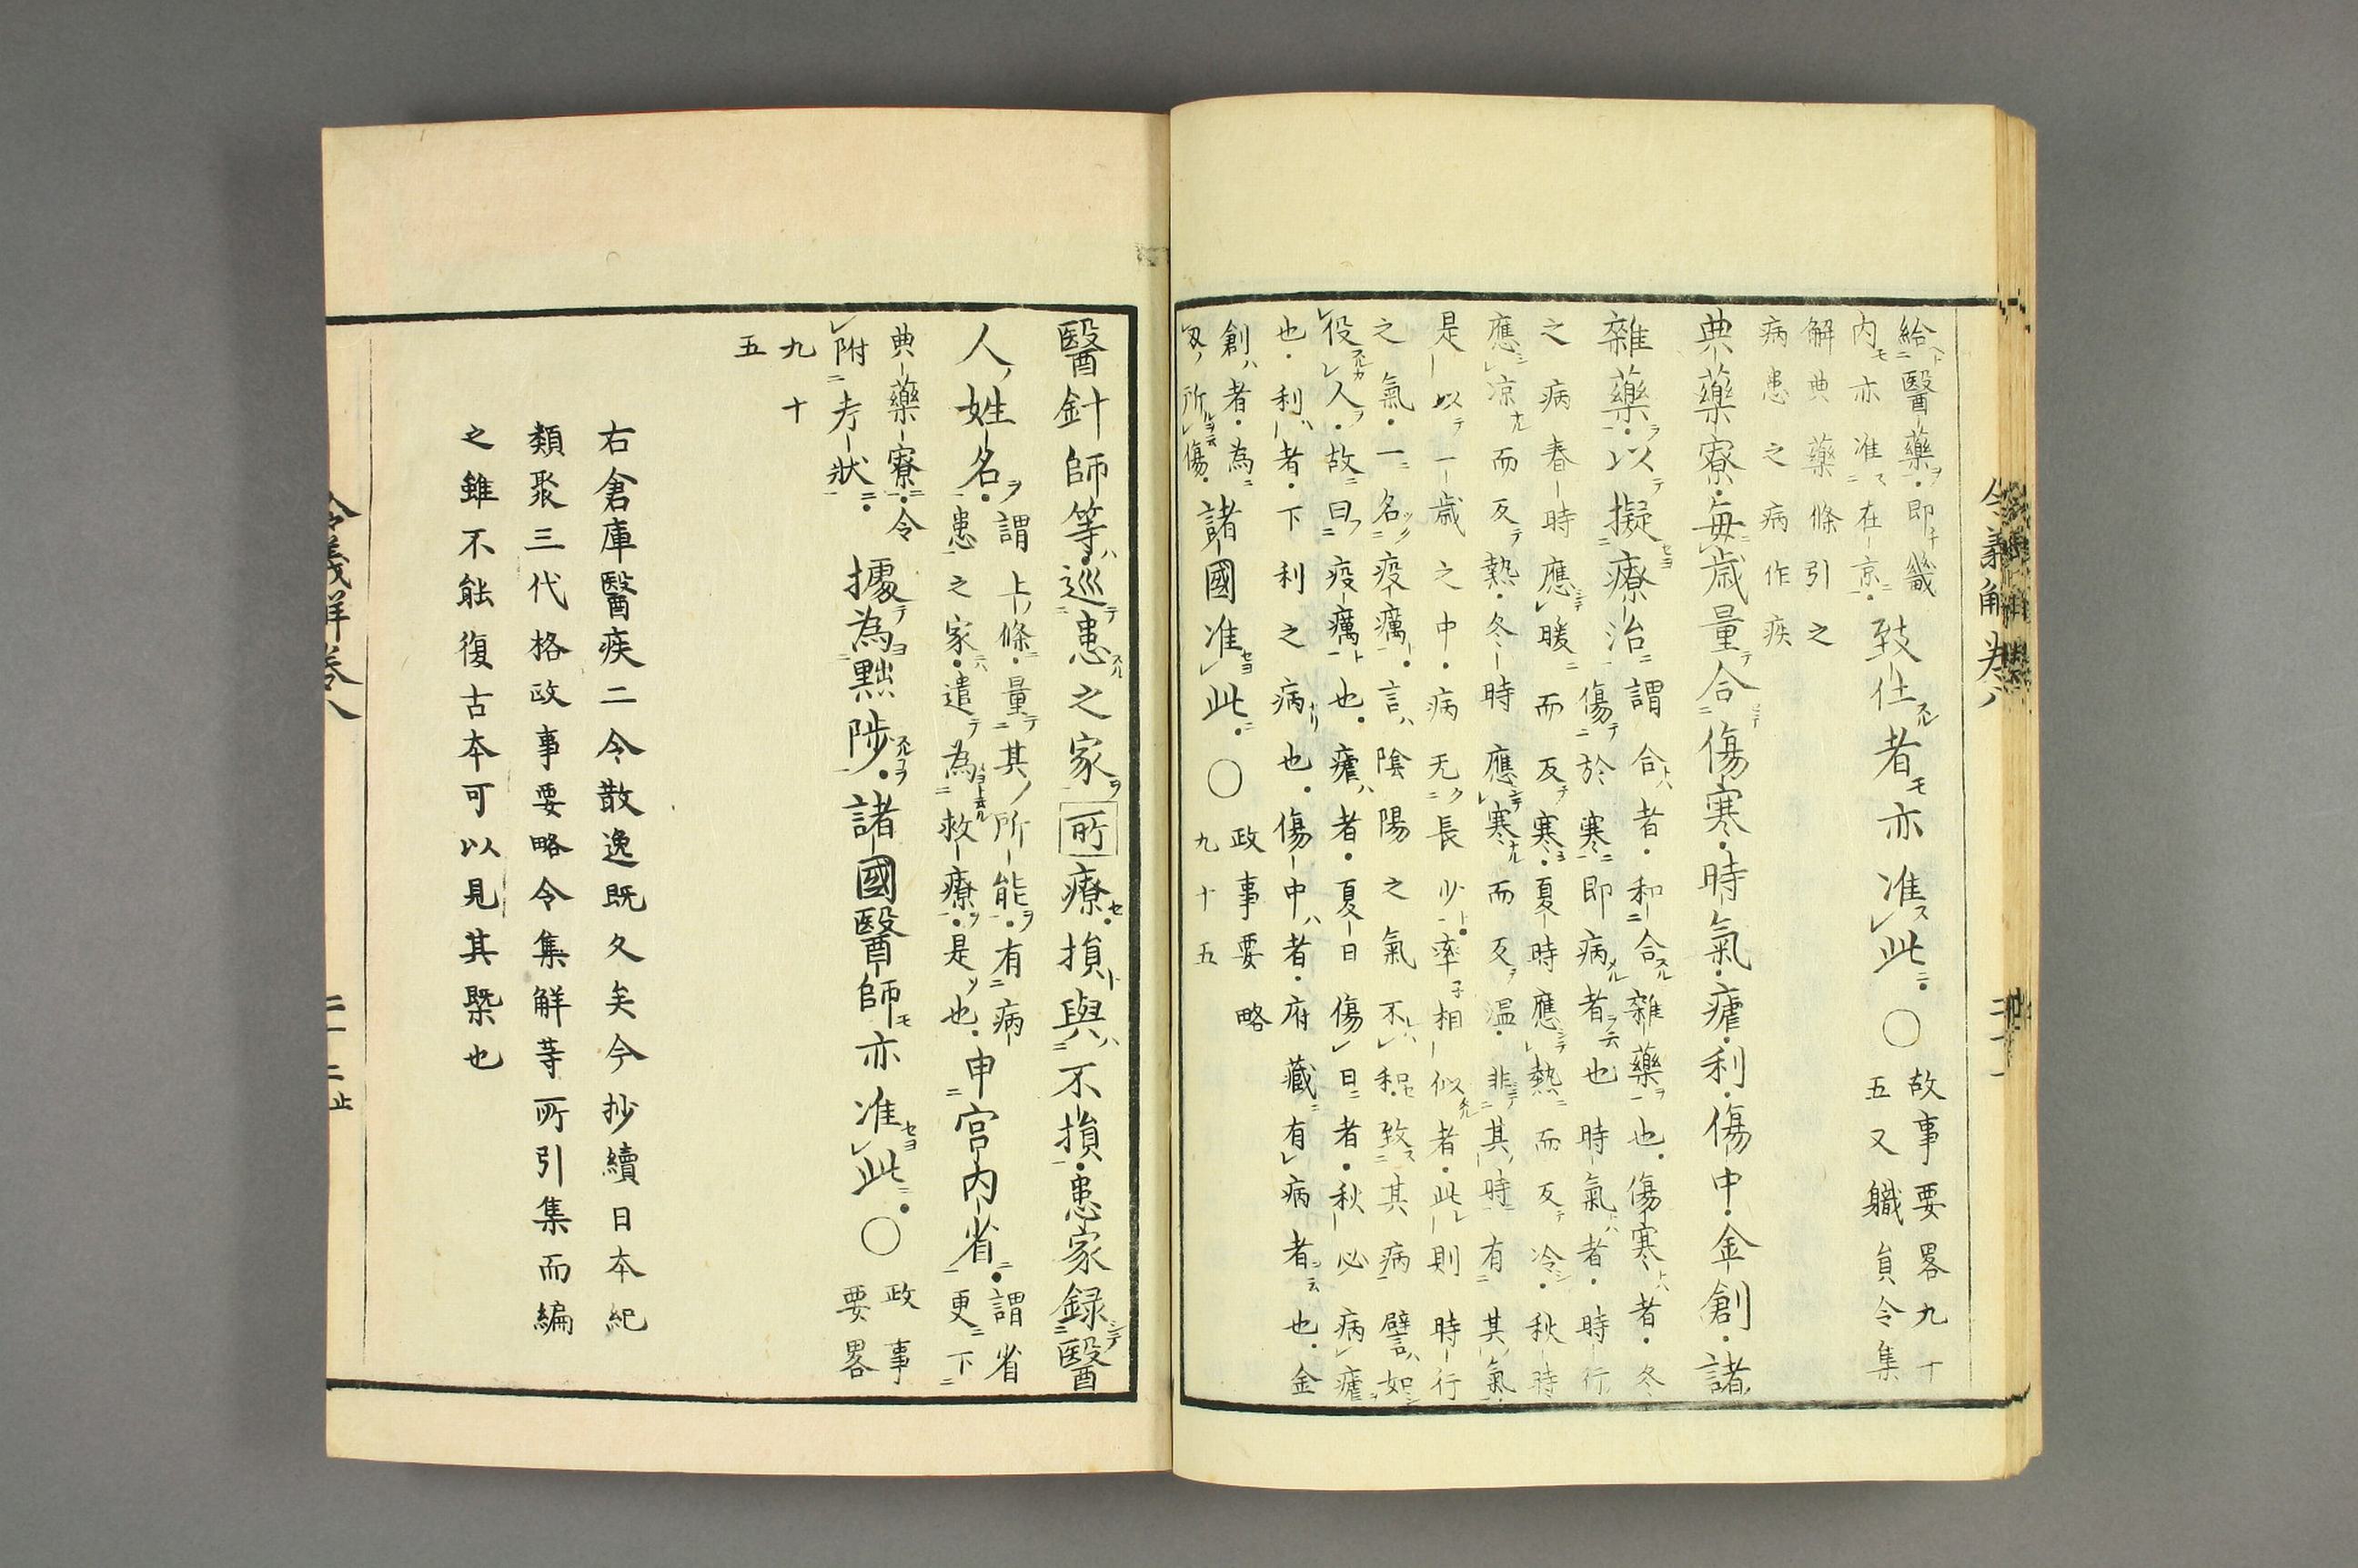 令義解卷八
給醫藥即畿
內亦准在京
致仕者亦准此○
故事要畧九十
五又職員令集
解典藥條引之
病患之病作疾
典藥寮每歲量合傷寒時氣瘧利傷中金創諸
雜藥以擬療治
謂合者和合雜藥也傷寒者冬
傷於寒即病者也時氣者時行
之病春時應暖而反寒夏時應熱而反冷秋時
應凉而反熱冬時應寒而反温非其時有其氣
是以一歲之中病无長少率相似者此則時行
之氣一名疫癘言陰陽之氣不和致其病譬如
役人故曰疫癘也瘧者夏日傷日者秋必病瘧
也利者下利之病也傷中者府藏有病者也金
創者為
刄所傷
諸國准此○
政事要略
九十五
醫針師等巡患之家所療損與不損患家録醫
人姓名
謂上條量其所能有病
患之家遣為救療是也
申宮内省
謂省
更下
典藥寮令
附考状
據為黜陟諸國醫師亦准此○
政事
要畧
九十
五
右倉庫醫疾二令散逸既久矣今抄續日本紀
類聚三代格政事要略令集解等所引集而編
之雖不能復古本可以見其槩也
令義解卷八
二十二止